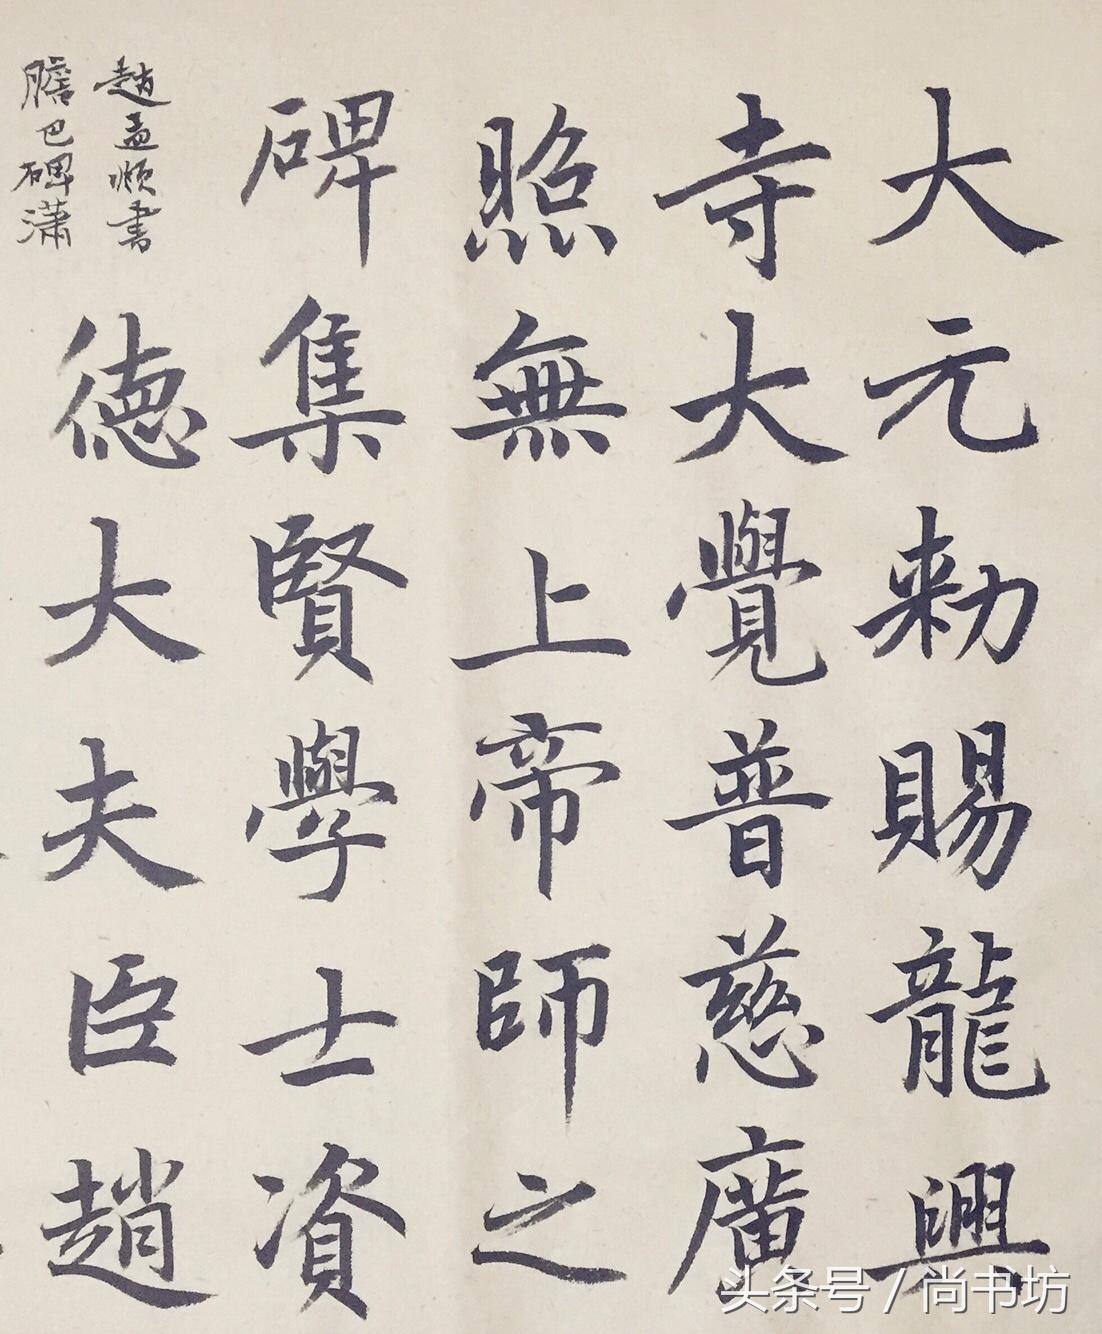 大元勅賜龍興
寺大覺普慈廣
照無上帝師之
碑集賢學士資
德大夫臣趙
趙孟頫書
膽巴碑潇
头条号 / 尚书坊